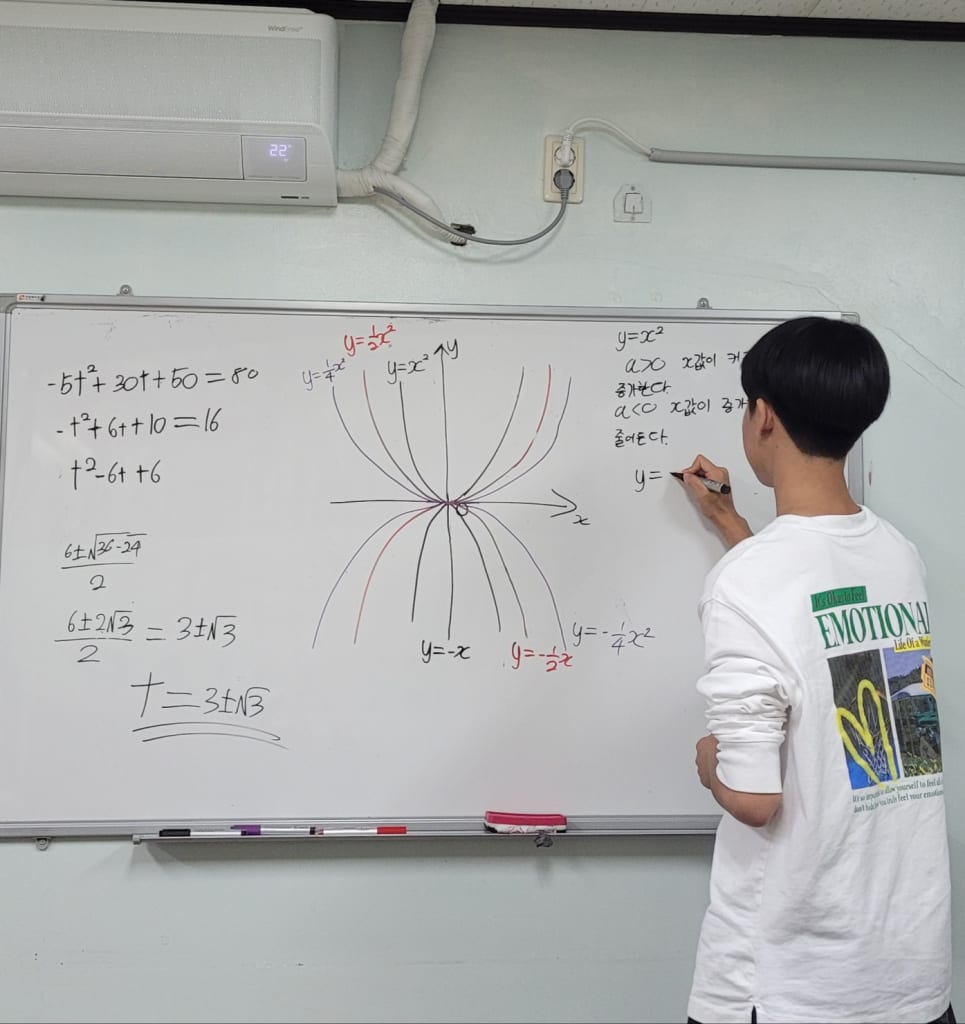 WindFree
22°
-5t²+30t+50=80
-t²+6t+10=16
t²-6t+6
6±√36-24
2
6±2√3
2
= 3±√3
t=3±√3
y=¼x²
y=½x²
y=x²
y
x
y=-x
y=-½x
y=-¼x²
y=x²
a>0 x값이 커
증가한다.
a<0 x값이 증가
줄어든다.
y=
It's Okay to Feel
EMOTIONAL
Life Of a